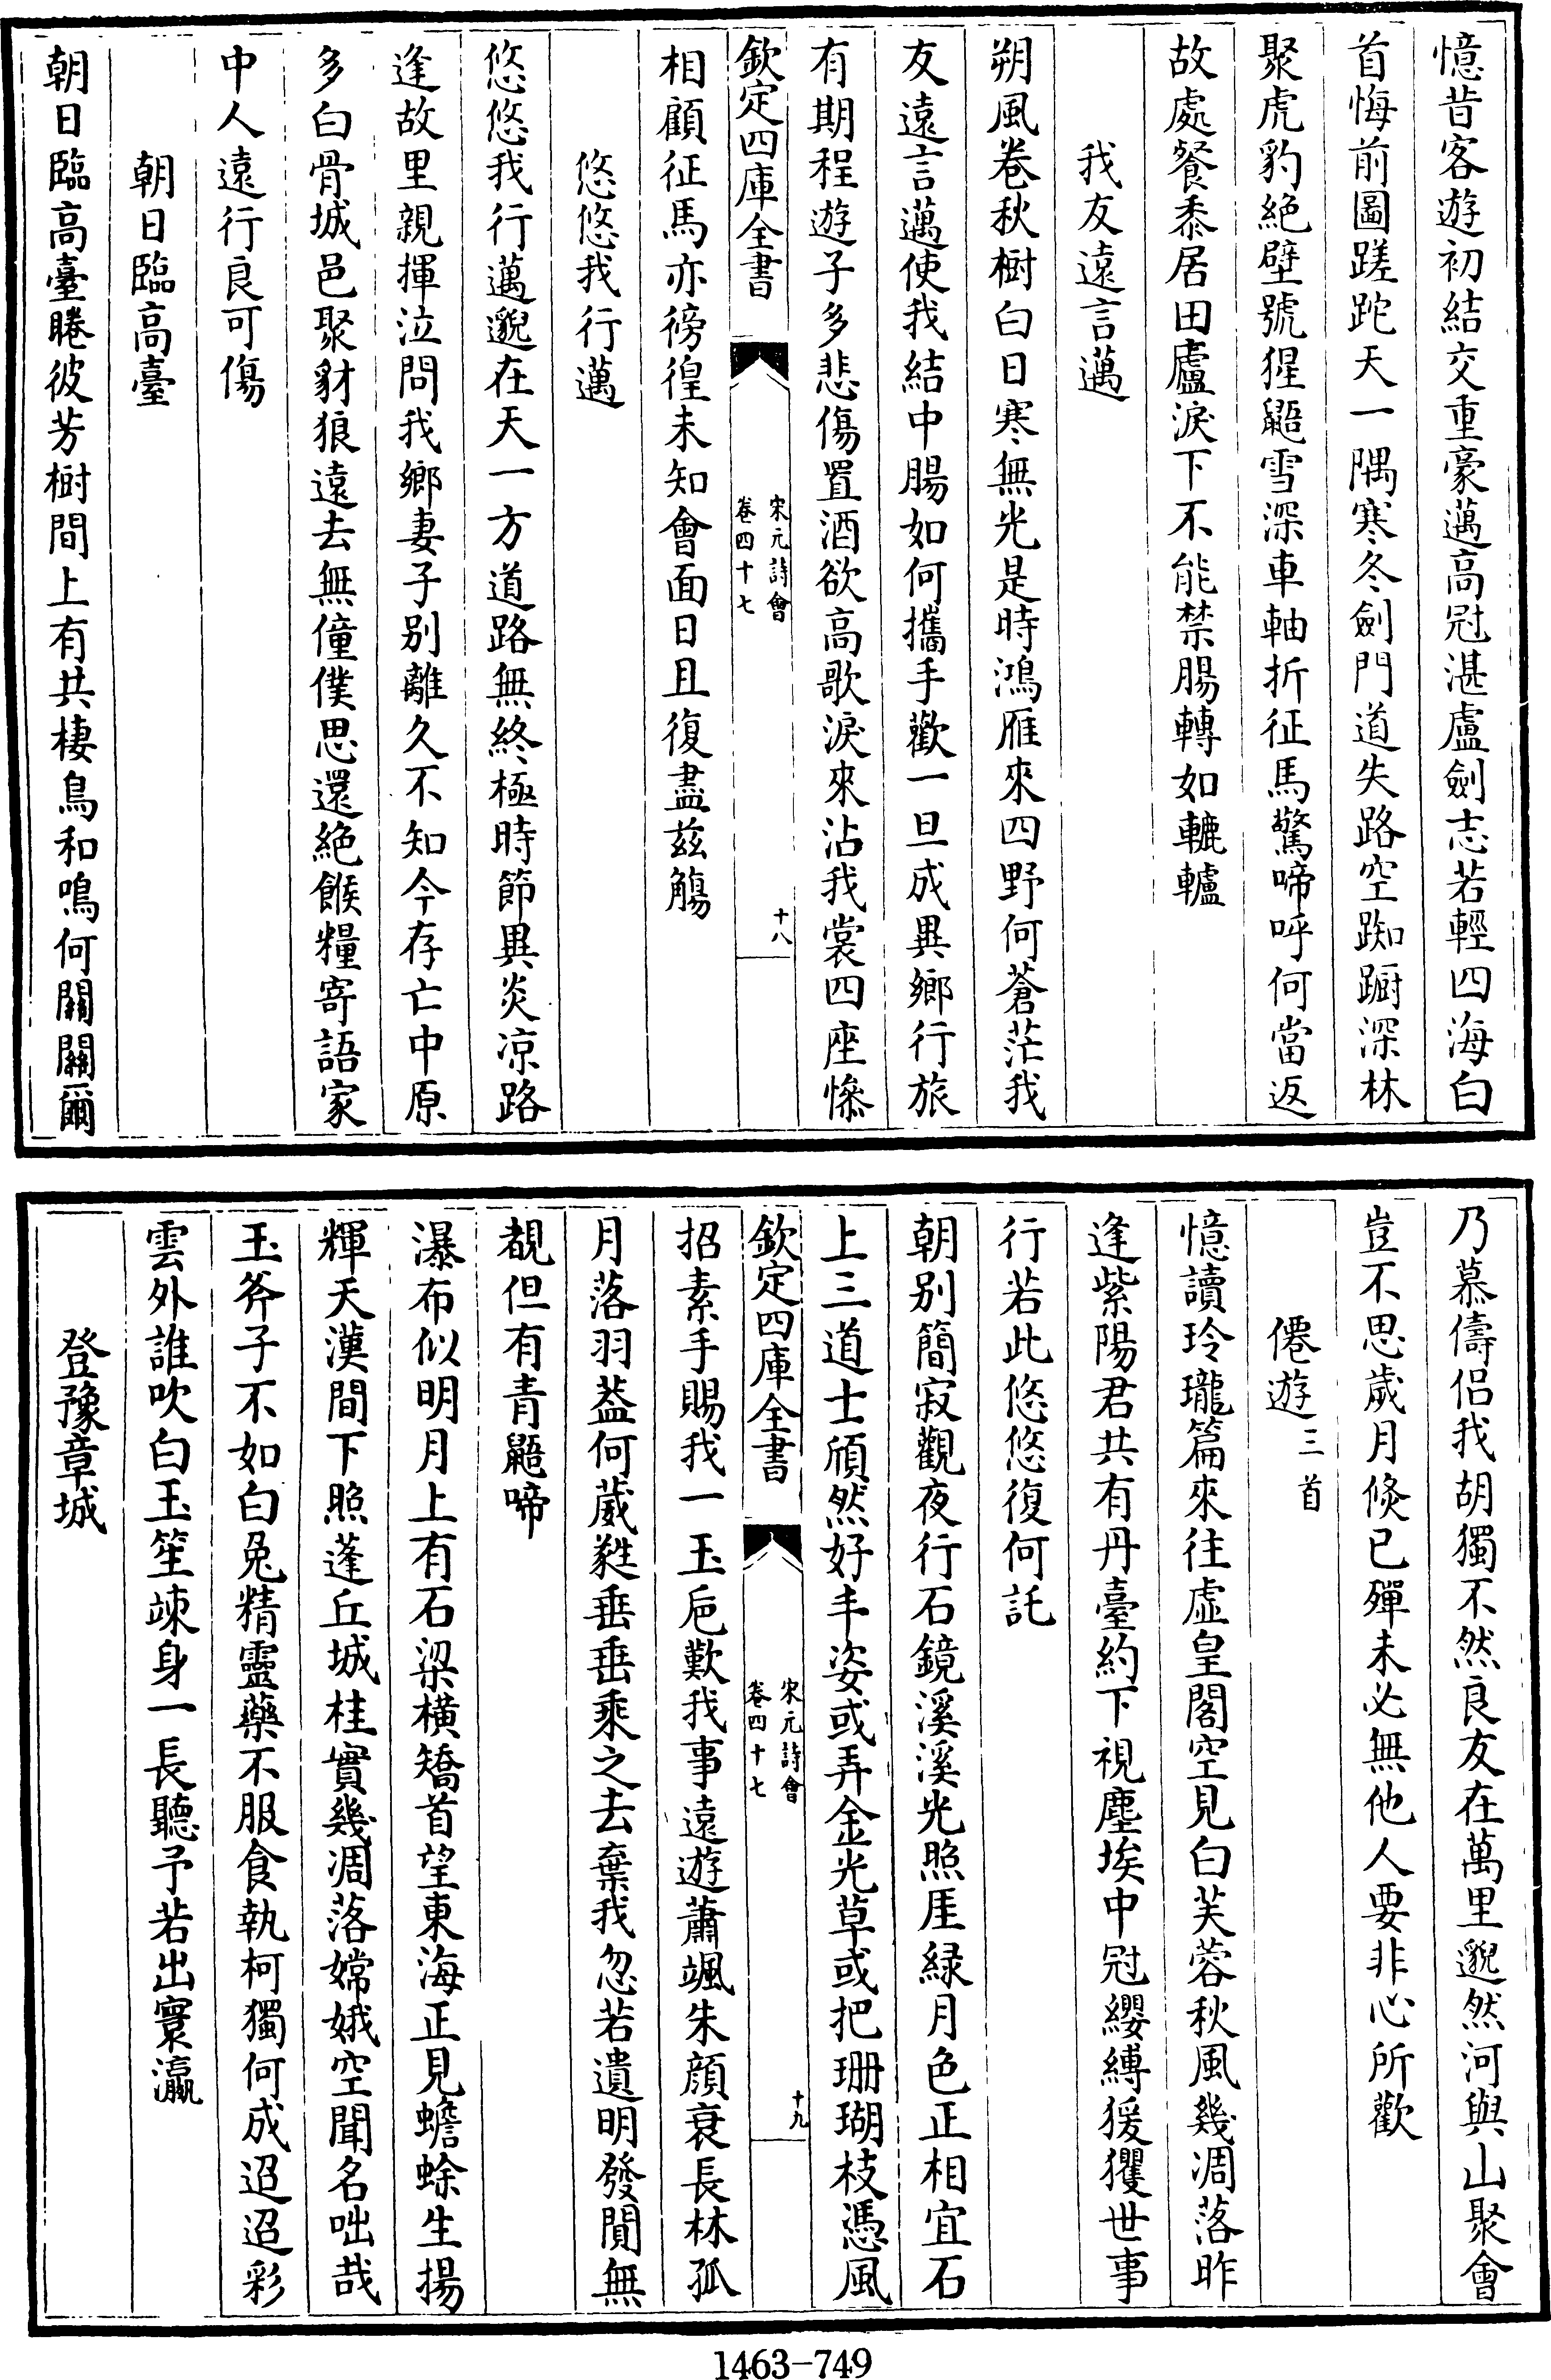 憶昔客遊初結交重豪邁高冠湛盧劍志若輕四海白
首悔前圖蹉跎天一隅寒冬劍門道失路空踟蹰深林
聚虎豹絶壁號猩鼯雪深車軸折征馬驚啼呼何當返
故處餐黍居田廬淚下不能禁腸轉如轆轤
我友遠言邁
朔風卷秋樹白日寒無光是時鴻雁來四野何蒼茫我
友遠言邁使我結中腸如何攜手歡一旦成異鄉行旅
有期程遊子多悲傷置酒欲高歌淚來沾我裳四座慘
欽定四庫全書
宋元詩會
卷四十七
十八
相顧征馬亦徬徨未知會面日且復盡兹觴
悠悠我行邁
悠悠我行邁邈在天一方道路無終極時節異炎凉路
逢故里親揮泣問我鄉妻子别離久不知今存亡中原
多白骨城邑聚豺狼遠去無僮僕思還絶餱糧寄語家
中人遠行良可傷
朝日臨高臺
朝日臨高臺睠彼芳樹間上有共棲鳥和鳴何關關爾
乃慕儔侣我胡獨不然良友在萬里邈然河與山聚會
豈不思歲月倐已殫未必無他人要非心所歡
僊遊三首
憶讀玲瓏篇來往虚皇閣空見白芙蓉秋風幾凋落昨
逢紫陽君共有丹臺約下視塵埃中冠纓縛猨玃世事
行若此悠悠復何託
朝别簡寂觀夜行石鏡溪溪光照厓緑月色正相宜石
上三道士頎然好丰姿或弄金光草或把珊瑚枝憑風
欽定四庫全書
宋元詩會
卷四十七
十九
招素手賜我一玉巵歎我事遠遊蕭颯朱顔衰長林孤
月落羽葢何葳蕤垂垂乘之去棄我忽若遺明發閴無
覩但有青鼯啼
瀑布似明月上有石梁横矯首望東海正見蟾蜍生揚
輝天漢間下照蓬丘城桂實幾凋落嫦娥空聞名咄哉
玉斧子不如白兔精靈藥不服食執柯獨何成迢迢彩
雲外誰吹白玉笙竦身一長聽予若出寰瀛
登豫章城
1463-749